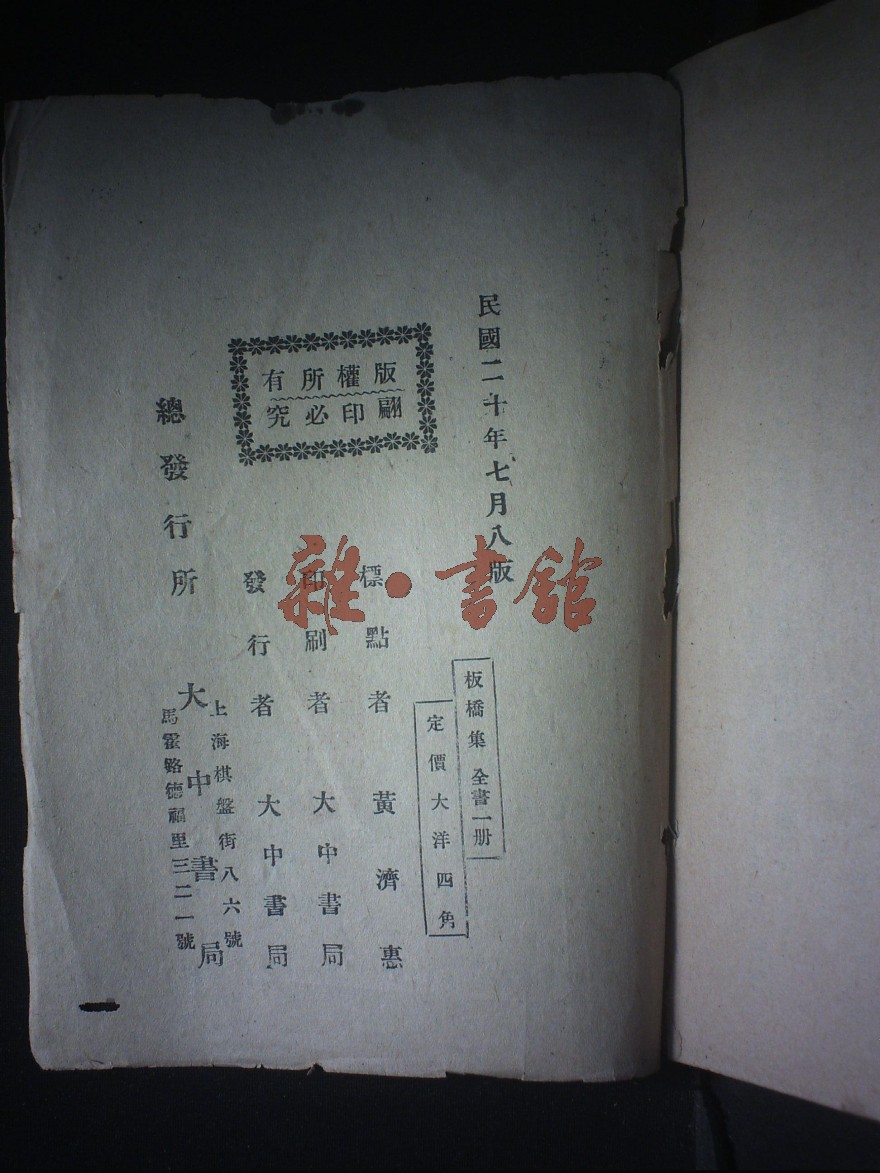 民國二十年七月八版
板橋集 全書一册
定價大洋四角
版權所有
翻印必究
標點者 黃濟惠
印刷者 大中書局
發行者 大中書局
總發行所 大中書局
上海棋盤街八六號
馬霍路德福里三二一號
雜·書館